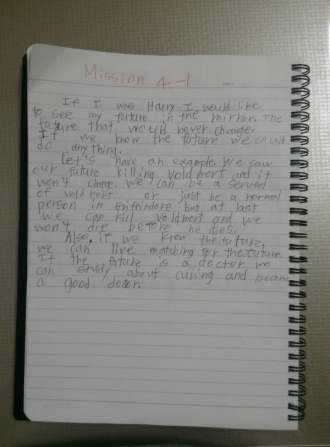 Mission 4-1
If I was Harry I would like
to see my future in the mirror. The
future that would never change.
If we know the future we could
do anything.
Let's have an example. We saw
our future killing Voldmort and it
won't change. We can be a servent
of voldmort or just be a normal
person in but at last
we can kill voldmort and we
won't die before he dies.
Also, if we knew the future,
we can live matching for the future.
If the future is a doctor we
can study about curing and become
a good doctor.